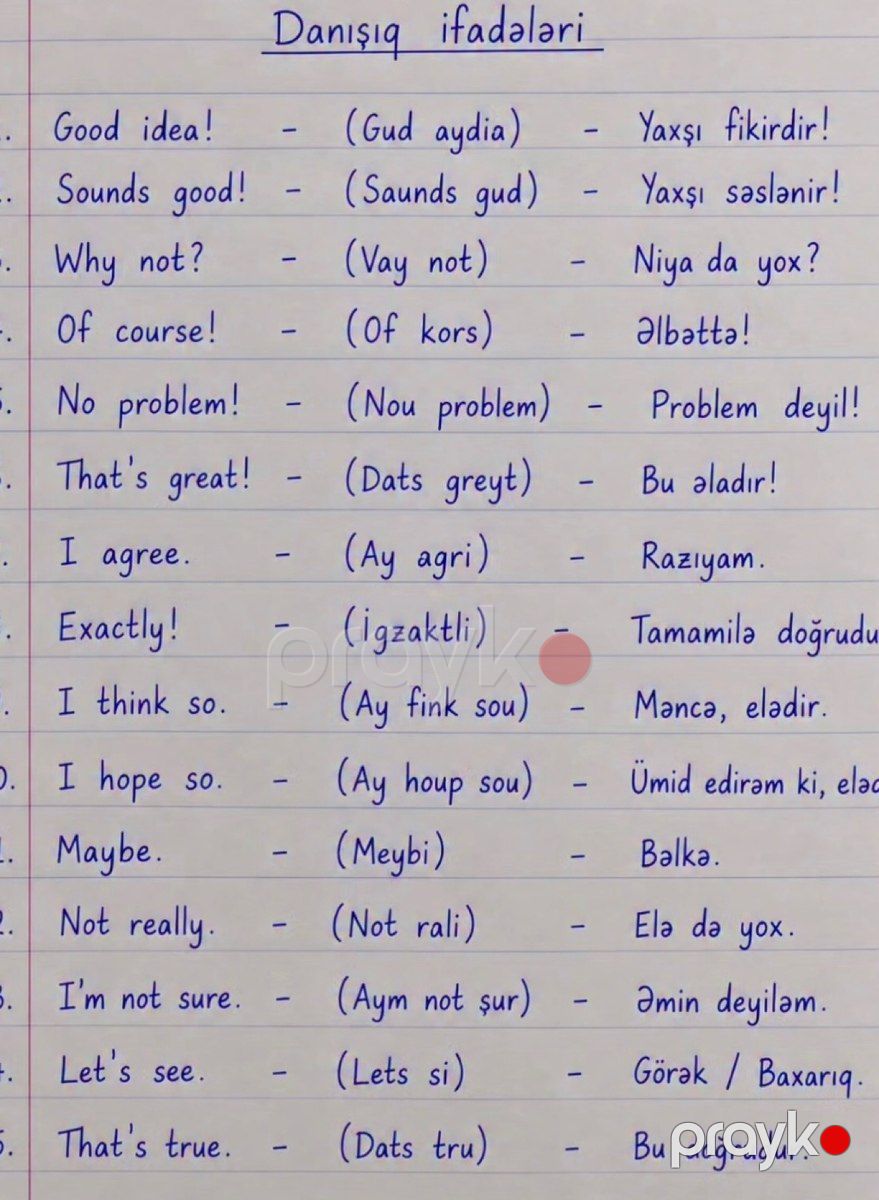 Danışıq ifadələri
Good idea! - (Gud aydia) - Yaxşı fikirdir!
Sounds good! - (Saunds gud) - Yaxşı səslənir!
Why not? - (Vay not) - Niyə də yox?
Of course! - (Of kors) - Əlbəttə!
No problem! - (Nou problem) - Problem deyil!
That's great! - (Dats greyt) - Bu əladır!
I agree. - (Ay agri) - Razıyam.
Exactly! - (İgzaktli) - Tamamilə doğrudu
I think so. - (Ay fink sou) - Məncə, elədir.
I hope so. - (Ay houp sou) - Ümid edirəm ki, eləd
Maybe. - (Meybi) - Bəlkə.
Not really. - (Not rali) - Elə də yox.
I'm not sure. - (Aym not şur) - Əmin deyiləm.
Let's see. - (Lets si) - Görək / Baxarıq.
That's true. - (Dats tru) - Bu
prayk
prayk